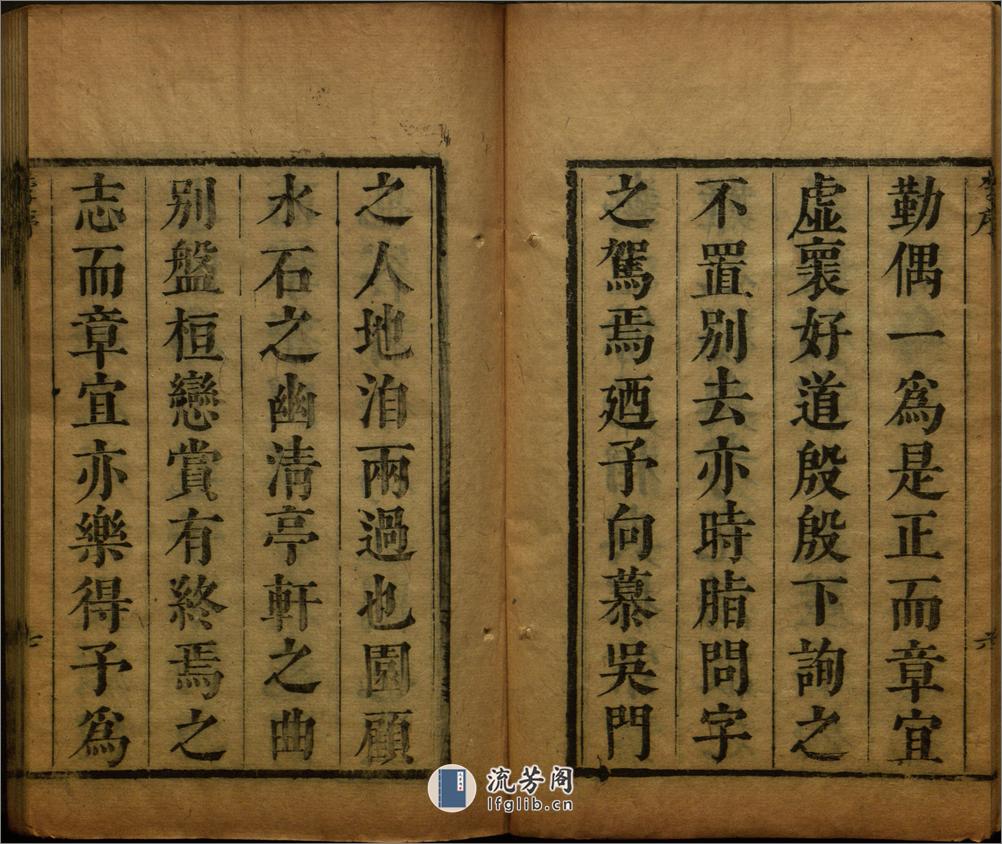 勒偶一爲是正而章宜
虛褱好道殷殷下詢之
不置别去亦時脂問字
之駕焉廼予向慕吳門
之人地洎兩過也園顧
水石之幽清亭軒之曲
别盤桓戀賞有終焉之
志而章宜亦樂得予爲
序
六
七
流芳阁
lfglib.cn